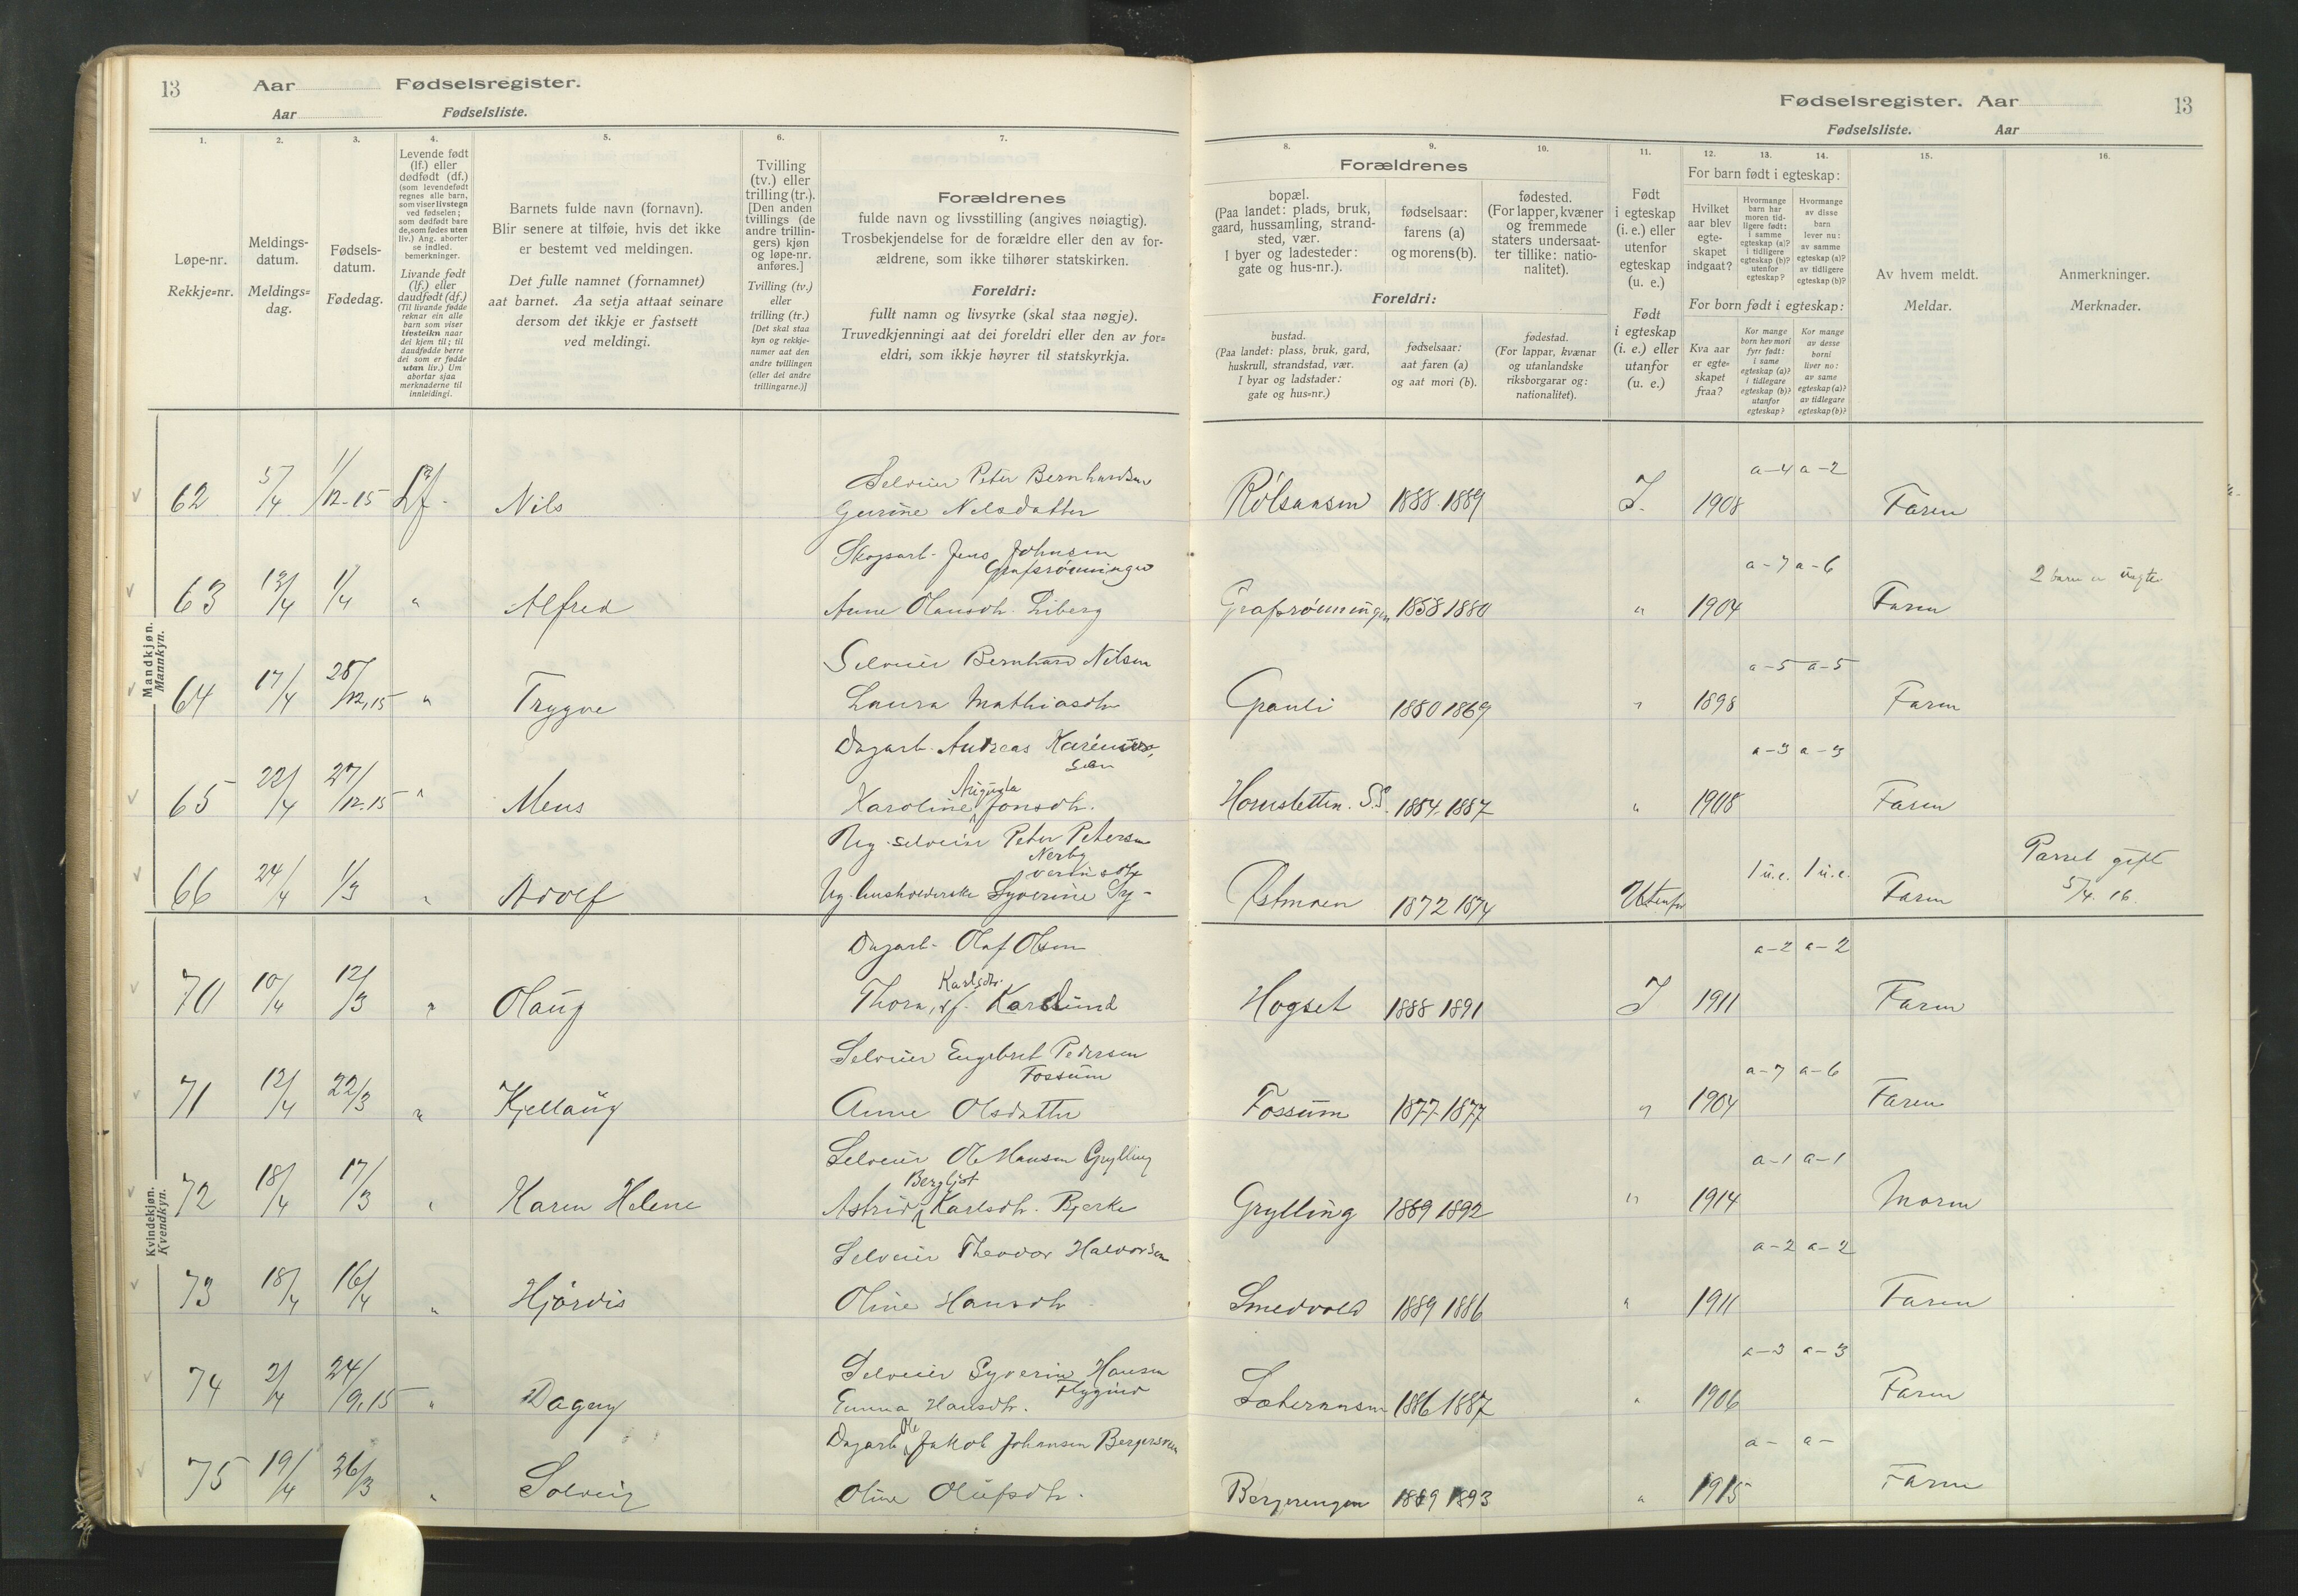 13 Aar Fødselsregister.
Aar Fødselsliste.
Fødselsregister. Aar 13
Fødselsliste. Aar
1. 2. 3. 4. 5. 6. 7.
8. 9. 10. 11. 12. 13. 14. 15. 16.
Løpe-nr.
Rekkje=nr.
Meldings-
datum.
Meldings=
dag.
Fødsels-
datum.
Fødedag.
Levende født
(lf.) eller
dødfødt (df.)
(som levendefødt
regnes alle barn,
som viser livstegn
ved fødselen;
som dødfødt bare
de, som fødes uten
liv.) Ang. aborter
se indled.
bemerkninger.
Livande født
(lf.) eller
daudfødt (df.)
(Til livande fødde
reknar ein alle
barn som viser
livsteikn naar
dei kjem til; til
daudfødde berre
dei som er fødde
utan liv.) Um
abortar sjaa
merknaderne til
innleidingi.
Barnets fulde navn (fornavn).
Blir senere at tilføie, hvis det ikke
er bestemt ved meldingen.
Det fulle namnet (fornamnet)
aat barnet. Aa setja attaat seinare
dersom det ikkje er fastsett
ved meldingi.
Tvilling
(tv.) eller
trilling (tr.).
[Den anden
tvillings (de
andre trillin-
gers) kjøn
og løpe-nr.
anføres.]
Tvilling (tv.)
eller
trilling (tr.)
[Det skal staa
kyn og rekkje-
numer aat den
andre tvillingen
(eller dei andre
trillingarne.)]
Forældrenes
fulde navn og livsstilling (angives nøiagtig).
Trosbekjendelse for de forældre eller den av for-
ældrene, som ikke tilhører statskirken.
Foreldri:
fullt namn og livsyrke (skal staa nøgje).
Truvedkjenningi aat dei foreldri eller den av for=
eldri, som ikkje høyrer til statskyrkja.
Forældrenes
bopæl.
(Paa landet: plads, bruk,
gaard, hussamling, strand-
sted, vær.
I byer og ladesteder:
gate og hus-nr.).
fødselsaar:
farens (a)
og morens (b).
fødested.
(For lapper, kvæner
og fremmede
staters undersaat-
ter tillike: natio-
nalitet).
Foreldri:
bustad.
(Paa landet: plass, bruk, gard,
huskrull, strandstad, vær.
I byar og ladstader:
gate og hus=nr.)
fødselsaar:
aat faren (a)
og aat mori (b).
fødestad.
(For lappar, kvænar
og utanlandske
riksborgarar og:
nationalitet).
Født
i egteskap
(i. e.) eller
utenfor
egteskap
(u. e.)
Født
i egteskap
(i. e.) eller
utanfor
(u. e.)
For barn født i egteskap:
Hvilket
aar blev
egte-
skapet
indgaat?
Hvormange
barn har
moren tid-
ligere født:
i samme
egteskap (a)?
i tidligere
egteskap (b)?
utenfor
egteskap?
Hvormange
av disse
barn
lever nu:
av samme
egteskap (a)?
av tidligere
egteskap (b)?
For born født i egteskap:
Kva aar
er egte-
skapet
fraa?
Kor mange
born hev mori
fyrr født:
i same
egteskap (a)?
i tidlegare
egteskap (b)?
utanfor
egteskap?
Kor mange
av desse
borni
liver no:
av same
egteskap (a)?
av tidlegare
egteskap (b)?
Av hvem meldt.
Meldar.
Anmerkninger.
Merknader.
Mandkjøn.
Mannkyn.
62 5/4 1/12-15 Lf. Nils Selveier Peter Bernhardsen
Gurine Nilsdatter 1888 1889 I. 1908 a-4 a-2 Faren
63 13/4 1/4 " Alfred Skogsarb. Jens Johnsen
Grafsrønningen
Anne Olausdtr. Liberg Grafsrønningen 1858 1880 " 1904 a-7 a-6 Faren 2 barn er uegte
64 17/4 28/12,15 " Trygve Selveier Bernhard Nilsen
Laura Mathiasdtr Granli 1880 1869 " 1898 a-5 a-5 Faren
65 22/4 27/12-15 " Mens Dagarb. Andreas Karenius-
sen
Augusta
Karoline Jonsdtr. Hornsletten. S.S. 1884. 1887 " 1908 a-3 a-3 Faren
66 24/4 1/3 " Adolf Ug. selveier Peter Petersen
Nerby
Ug. husholderske Syverine Sy-
verinsdtr Østmoen 1872 1874 Utenfor 1 u.e. 1 u.e. Faren Parret gift
5/4. 16.
Kvindekjøn.
Kvendkyn.
70 10/4 12/3 " Olaug Dagarb. Olaf Olsen
Karlsdtr.
Thora, f. Karlund Hogset 1888 1891 I 1911 a-2 a-2 Faren
71 12/4 22/3 " Kjellaug Selveier Engebret Pedersen
Fossum
Anne Olsdatter Fossum 1877 1877 " 1904 a-7 a-6 Faren
72 18/4 17/3 " Karen Helene Selveier Ole Hansen Grylling
Bergljot
Astrid Karlsdtr. Bjerke Grylling 1889 1892 " 1914 a-1 a-1 Moren
73 18/4 16/4 " Hjørdis Selveier Theodor Halvorsen
Oline Hansdtr Smedvold 1889 1886 " 1911 a-2 a-2 Faren
74 2/4 24/9,15 " Dagny Selveier Syverin Hansen
Flygind
Emma Hansdtr. 1886 1887 " 1906 a-3 a-3 Faren
75 19/4 26/3 " Solveig Dagarb. Ole Jakob Johansen Bergersveen
Oline Olufsdtr. Bergerengen 1889 1893 " 1915 a- a- Faren